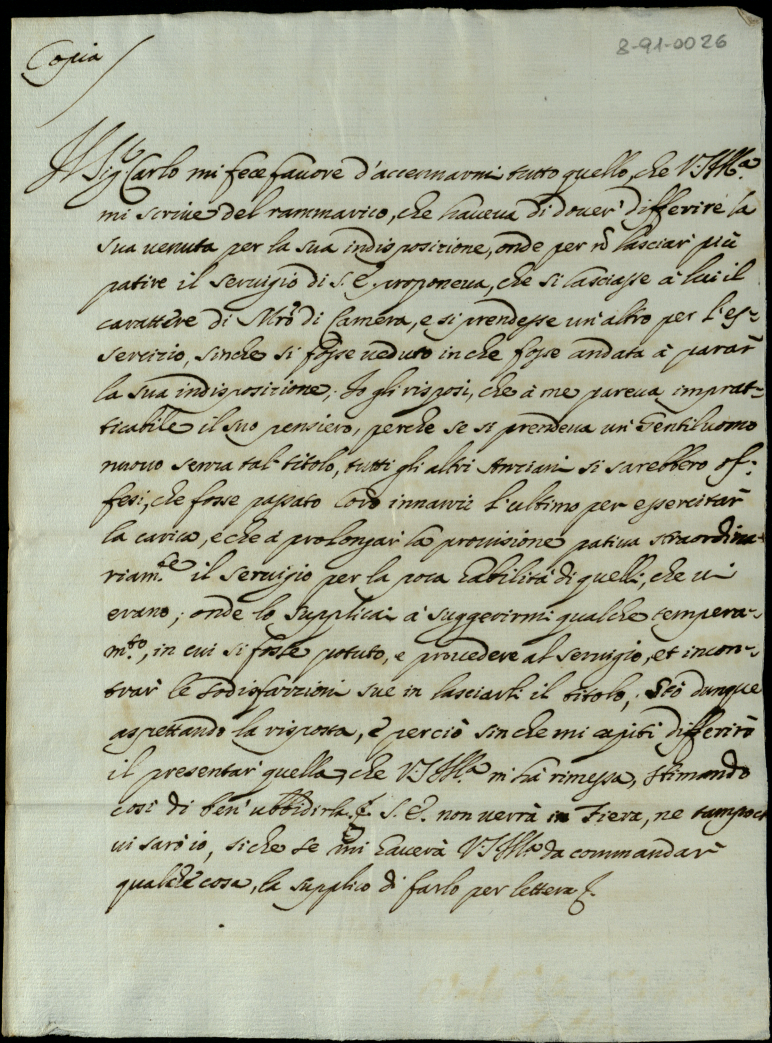 8-91-0026
Copia
Il Sig.r Carlo mi fece favore d'accennarmi tutto quello, che V.S. Ill.ma
mi scrive del rammarico, che haveva di dover' differire la
sua venuta per la sua indisposizione, onde per nõ lasciar' più
patire il servigio di S. E. proponeva, che si lasciasse à lui il
carattere di Mrõ di Camera, e si prendesse un'altro per l'es=
sercizio, sinche si fosse veduto in che fosse andata à parar'
la sua indisposizione; Io gli risposi, che à me pareva imprat=
ticabile il suo pensiero, perche se si prendeva un' Gentiluomo
nuovo senza tal' titolo, tutti gli altri Anziani si sarebbero of=
fesi, che fosse passato loro innanzi l'ultimo per essercitar'
la carica, e che à prolongar la provisione pativa straordina=
riam.te il servigio per la poca habilità di quelli, che vi
erano; onde lo supplicai à suggerirmi qualche tempera=
m.to, in cui si fosse potuto, e provedere al servigio, et incon=
trar' le sodisfazzioni sue in lasciarli il titolo; Stò dunque
aspettando la risposta, e perciò sin che mi capiti differirò
il presentar' quella, che V.S. Ill.ma m'hà rimessa, stimando
così di ben' ubbidirla. S. E. non verrà in Fiera, ne tampoco
vi sarò io, siche se mi haverà V.S. Ill.ma da commandar'
qualche cosa, la supplico di farlo per lettera